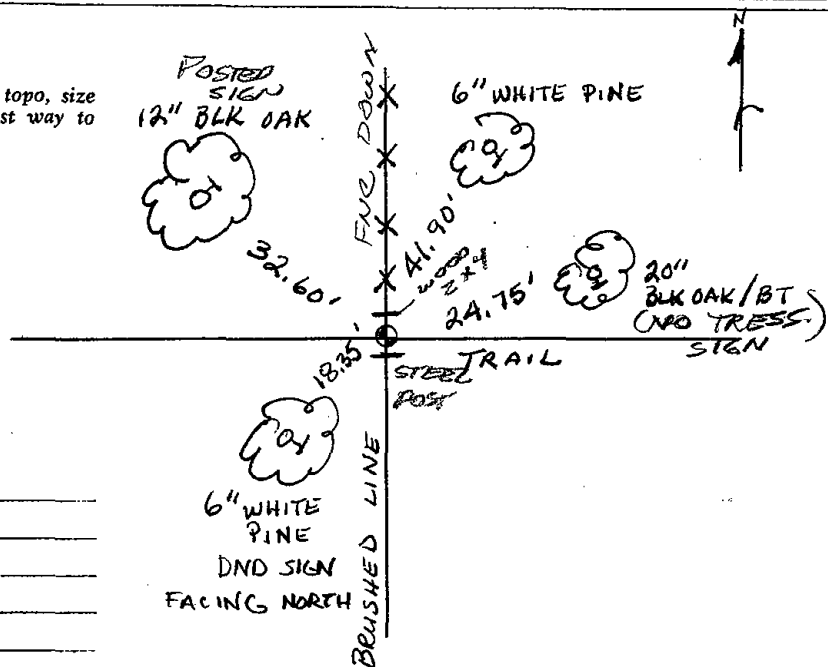 N
topo, size
st way to
POSTED
SIGN
12" BLK OAK
FNC DOWN
6" WHITE PINE
32.60'
41.90'
WOOD
2x4
24.75'
20"
BLK OAK/BT
(NO TRESS.)
SIGN
18.35'
STEEL
POST
TRAIL
6" WHITE
PINE
DND SIGN
FACING NORTH
BRUSHED LINE